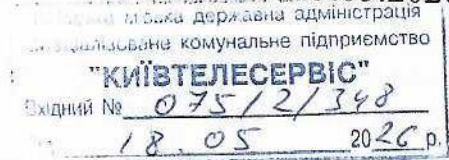 міська державна адміністрація
комунальне підприємство
"КИЇВТЕЛЕСЕРВІС"
Вхідний № 075/2/348
18.05 2026 р.